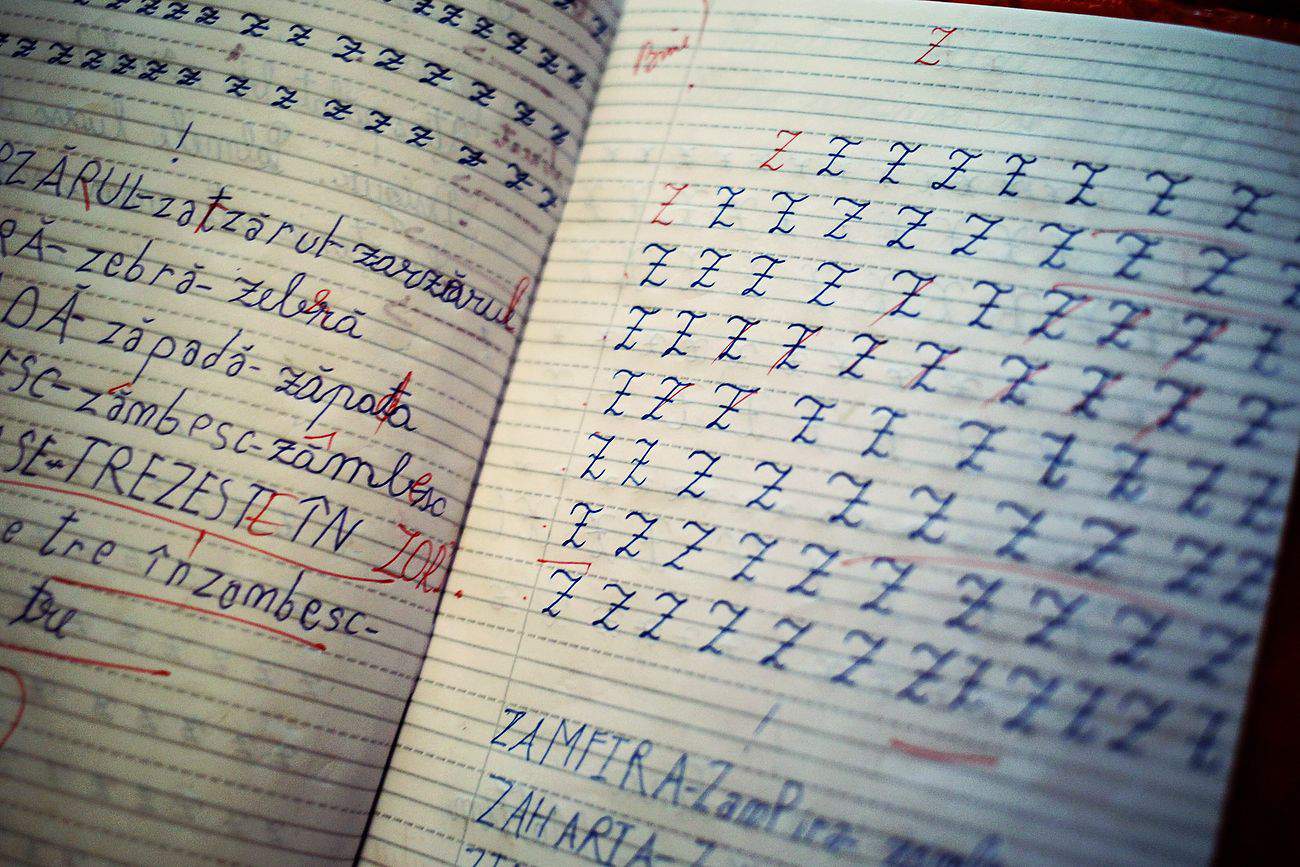 z z z z z z z z z z z z
z z z z z z z z z z z z z z
RZĂRUL-zatzărul-zarzărul
RĂ-zebră-zebră
DĂ-zăpadă-zăpada
ESC-zâmbesc-zâmbesc
SE-TREZESTE ÎN ZORI
e tre înzombesc-
tre
Bine
Z
Z Z Z Z Z Z Z Z
Z Z Z Z Z Z Z Z Z Z
Z Z Z Z Z Z Z Z Z Z
Z Z Z Z Z Z Z Z Z Z
Z Z Z Z Z Z Z Z Z
Z Z Z Z Z Z Z Z Z Z
Z Z Z Z Z Z Z Z Z
Z Z Z Z Z Z Z Z Z Z Z Z
ZAMFIRA-Zamfira
ZAHARIA-Z